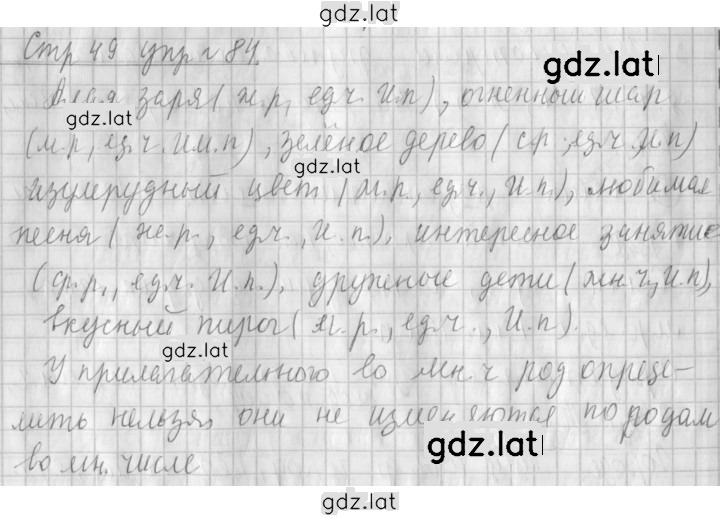 gdz.lat
Стр 49 упр № 84
gdz.lat
Алая заря (ж.р, ед.ч. И.п), огненный шар
gdz.lat
(м.р, ед.ч. Им.п), зелёное дерево (ср., ед.ч. И.п)
изумрудный цвет (м.р., ед.ч., И.п.), любимая
песня (же.р., ед.ч., И.п.), интересное занятие
(ср.р., ед.ч. И.п.), дружные дети (мн.ч, И.п),
вкусный пирог (м.р., ед.ч., И.п).
gdz.lat
У прилагательного во мн.ч род опреде-
лить нельзя, они не изменяются по родам
gdz.lat
во мн. числе
gdz.lat